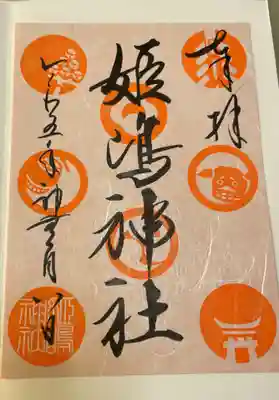 奉拝
姫嶋神社
令和五年神無月 一日
姫嶋神社